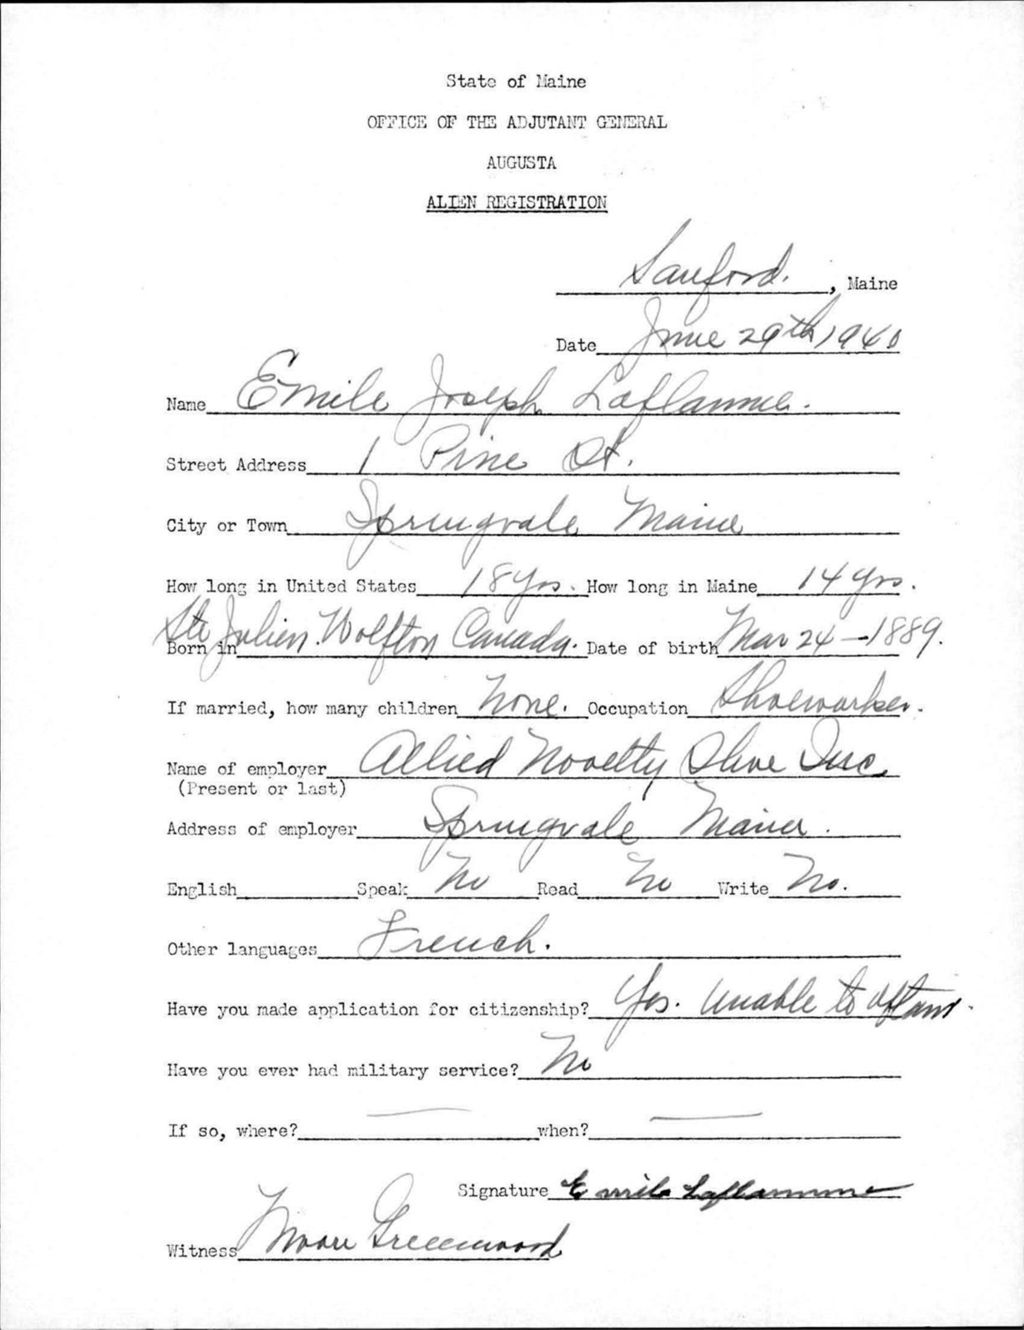 State of Maine
OFFICE OF THE ADJUTANT GENERAL
AUGUSTA
ALIEN REGISTRATION
Sanford. , Maine
Date June 29th 1940
Name Emile Joseph Laflamme.
Street Address 1 Pine St.
City or Town Springvale Maine
How long in United States 18 yrs. How long in Maine 14 yrs.
Born in Ste Julien. Wolfton Canada. Date of birth Mar 24 - 1889.
If married, how many children None. Occupation Shoeworker.
Name of employer Allied Novelty Shoe Inc.
(Present or last)
Address of employer Springvale Maine.
English Speak No Read No Write No.
Other languages French.
Have you made application for citizenship? Yes. Unable to
Have you ever had military service? No
If so, where? when?
Signature Emile Laflamme
Witness Greenwood